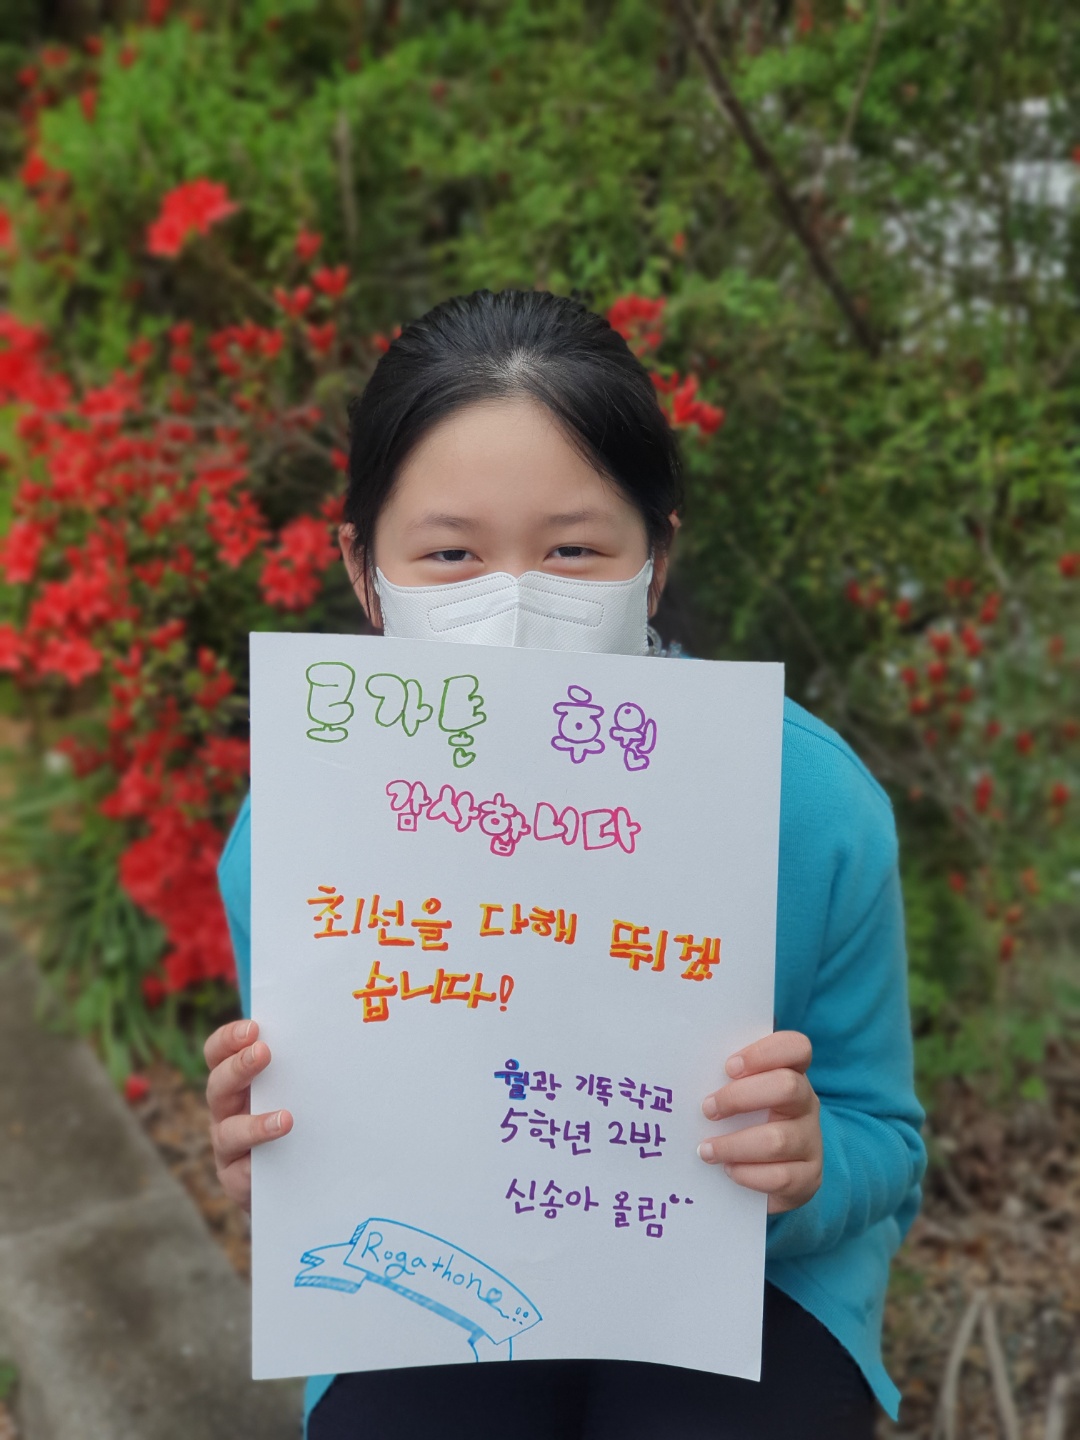 로가톤 후원
감사합니다
최선을 다해 뛰겠
습니다!
월광 기독학교
5학년 2반
신송아 올림^^
Rogathone